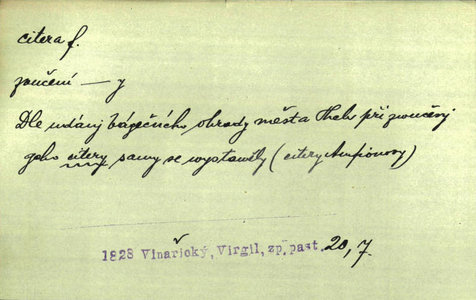 citera f.
zvučení — y
Dle udánj bágečného ohrady města Theb při zvučenj
geho citery samy se wystawěly (citery Amfionowy)
1828 Vinařický, Virgil, zp. past. 20, 7.